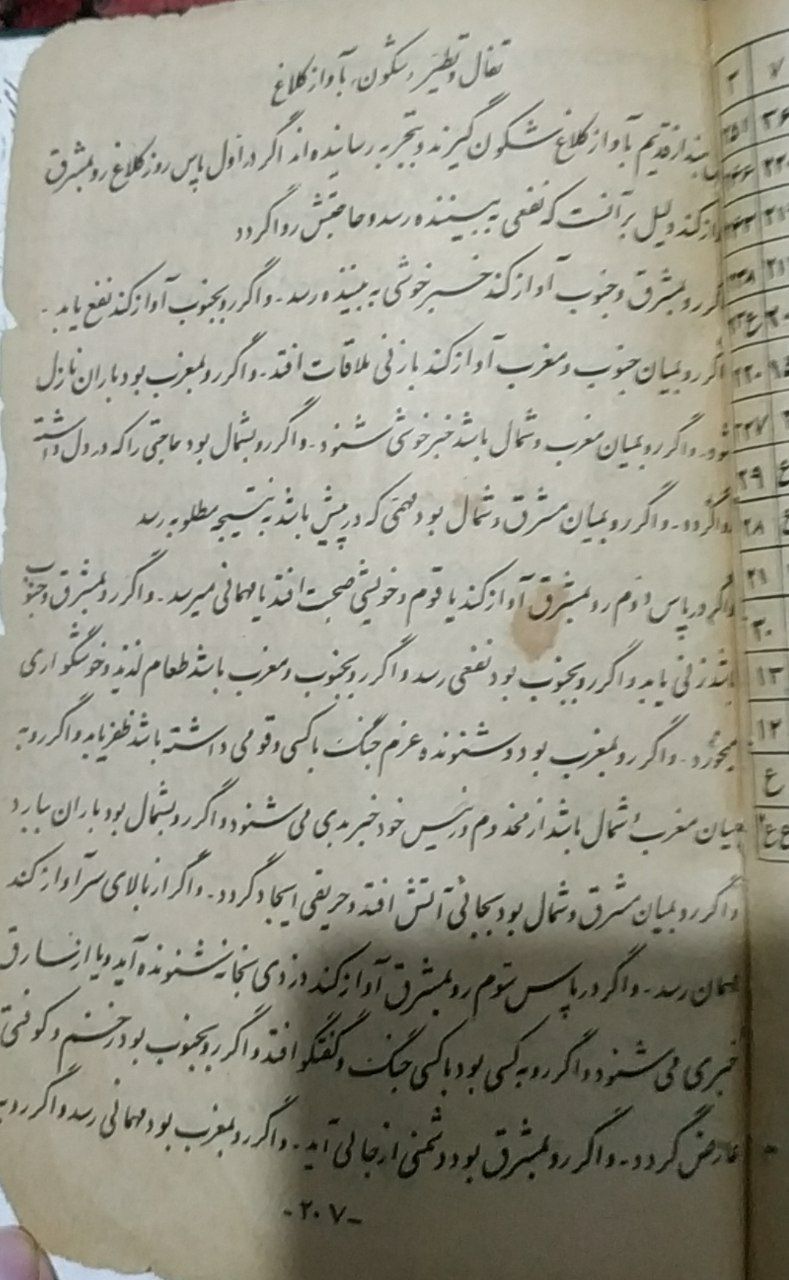 تفال و تطیر و شگون بآواز کلاغ
از قدیم بآواز کلاغ شگون گیرند و بتجربه رسانیده اند اگر در اول پاس روز کلاغ رو بمشرق
کند دلیل بر آنست که نفعی به بیننده رسد و حاجتش روا گردد
اگر رو بمشرق و جنوب آواز کند خبر خوشی به بیننده رسد - و اگر رو بجنوب آواز کند نفع یابد -
اگر رو بمیان جنوب و مغرب آواز کند بازنی ملاقات افتد - و اگر رو بمغرب بود باران نازل
شود - و اگر رو بمیان مغرب و شمال باشد خبر خوشی شنود - و اگر رو بشمال بود حاجتی را که در دل داشته
روا گردد - و اگر رو بمیان مشرق و شمال بود مهمی که در پیش باشد به نتیجه مطلوبه رسد
و اگر در پاس دوم رو بمشرق آواز کند یا قوم و خویشی صحبت افتد یا مهمانی میرسد - و اگر رو بمشرق و جنوب
باشد زنی یابد و اگر رو بجنوب بود نفعی رسد و اگر رو بجنوب و مغرب باشد طعام لذیذ و خوشگواری
میخورد - و اگر رو بمغرب بود و شنونده عزم جنگ با کسی و قومی داشته باشد ظفر یابد و اگر رو به
میان مغرب و شمال باشد از مخدوم و رئیس خود خبر بدی می شنود و اگر رو بشمال بود باران ببارد
و اگر رو بمیان مشرق و شمال بود بجائی آتش افتد و حریقی ایجاد گردد - و اگر از بالای سر آواز کند
مهمان رسد - و اگر در پاس سوم رو بمشرق آواز کند دزدی بخانه شنونده آید و یا از سارق
خبری می شنود و اگر رو به کسی بود با کسی جنگ و گفتگو افتد و اگر رو بجنوب بود زخم و کوفتی
عارض گردد - و اگر رو بمشرق بود دشمنی از جائی آید - و اگر رو بمغرب بود مهمانی رسد و اگر رو به
- ۲۰۷ -